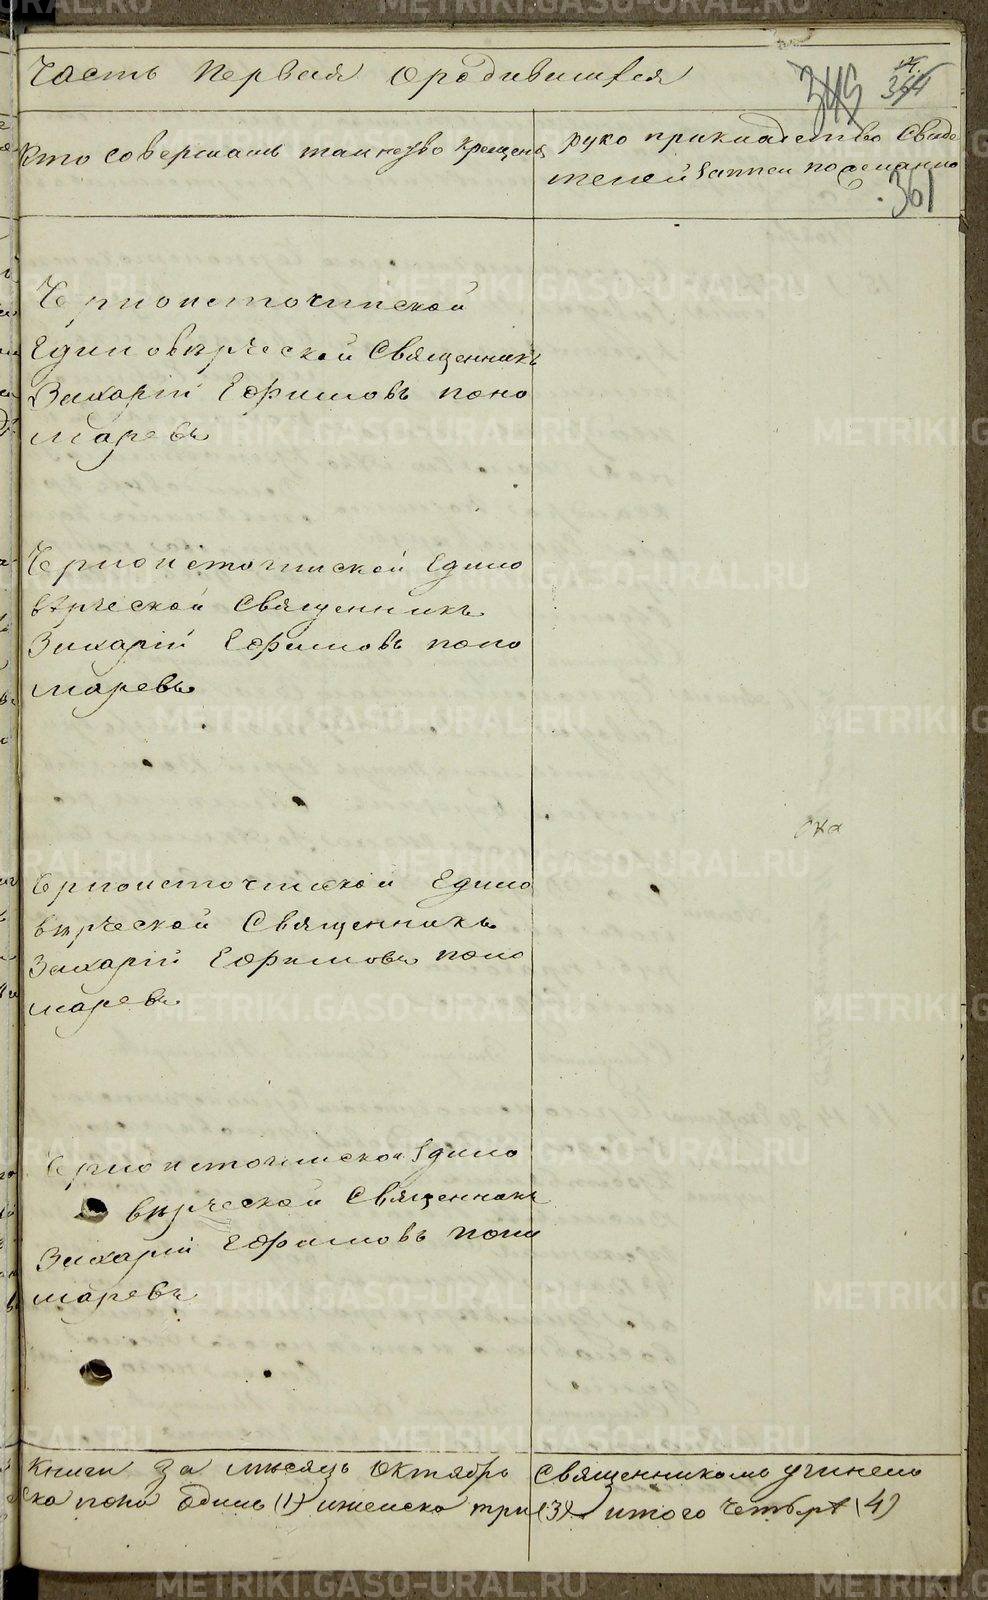 Часть Первая о родившихся
345 354
Кто совершалъ таинство крещенія
руко прикладство Свиде
телей записи по желанию
361
Черноисточинской
Единовѣрческой Священникъ
Захарій Ефимовъ поно
маревъ
Черноисточинской Едино
вѣрческой Священникъ
Захарій Ефимовъ поно
маревъ
Черноисточинской Едино
вѣрческой Священникъ
Захарій Ефимовъ поно
маревъ
Черноисточинской Едино
вѣрческой Священникъ
Захарій Ефимовъ поно
маревъ
Книги За мѣсяцъ Октябрь Священникомъ учинено
ска пола одинъ (1) и женска три (3) итого Четыре (4)
METRIKI.GASO-URAL.RU